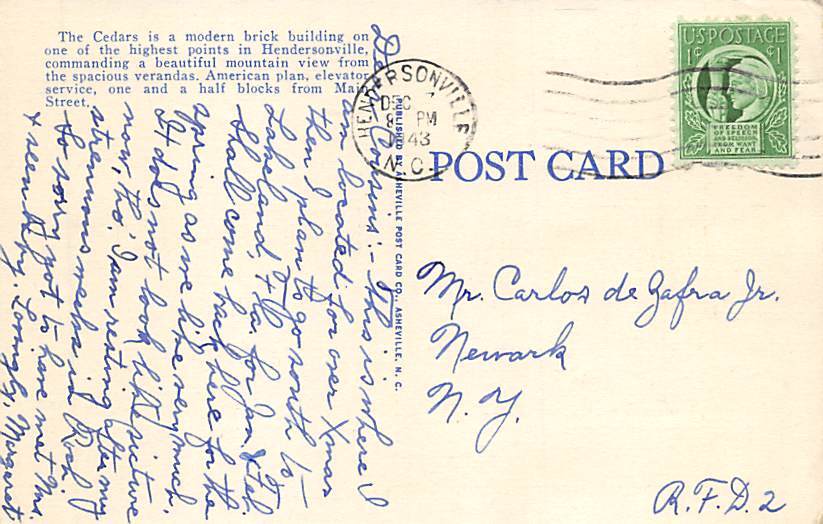 The Cedars is a modern brick building on
one of the highest points in Hendersonville,
commanding a beautiful mountain view from
the spacious verandas. American plan, elevator
service, one and a half blocks from Main
Street.
Dear Cousins:- This is where I
am located for over Xmas
then I plan to go south to -
Lakeland, Fla. for Jan. & Feb.
Shall come back here for the
spring as we like very much.
It does not look like picture
now, tho'. I am resting after my
strenuous weeks in Roch.
So sorry not to have met Mrs.
& seen baby. Lovingly, Margaret
PUBLISHED BY ASHEVILLE POST CARD CO., ASHEVILLE, N. C.
HENDERSONVILLE
DEC 7
8 PM
43
N.C.
U.S. POSTAGE
1¢ ¢1
FREEDOM
OF SPEECH
AND RELIGION,
FROM WANT
AND FEAR
POST CARD
Mr. Carlos de Zafra Jr.
Newark
N.Y.
R.F.D. 2